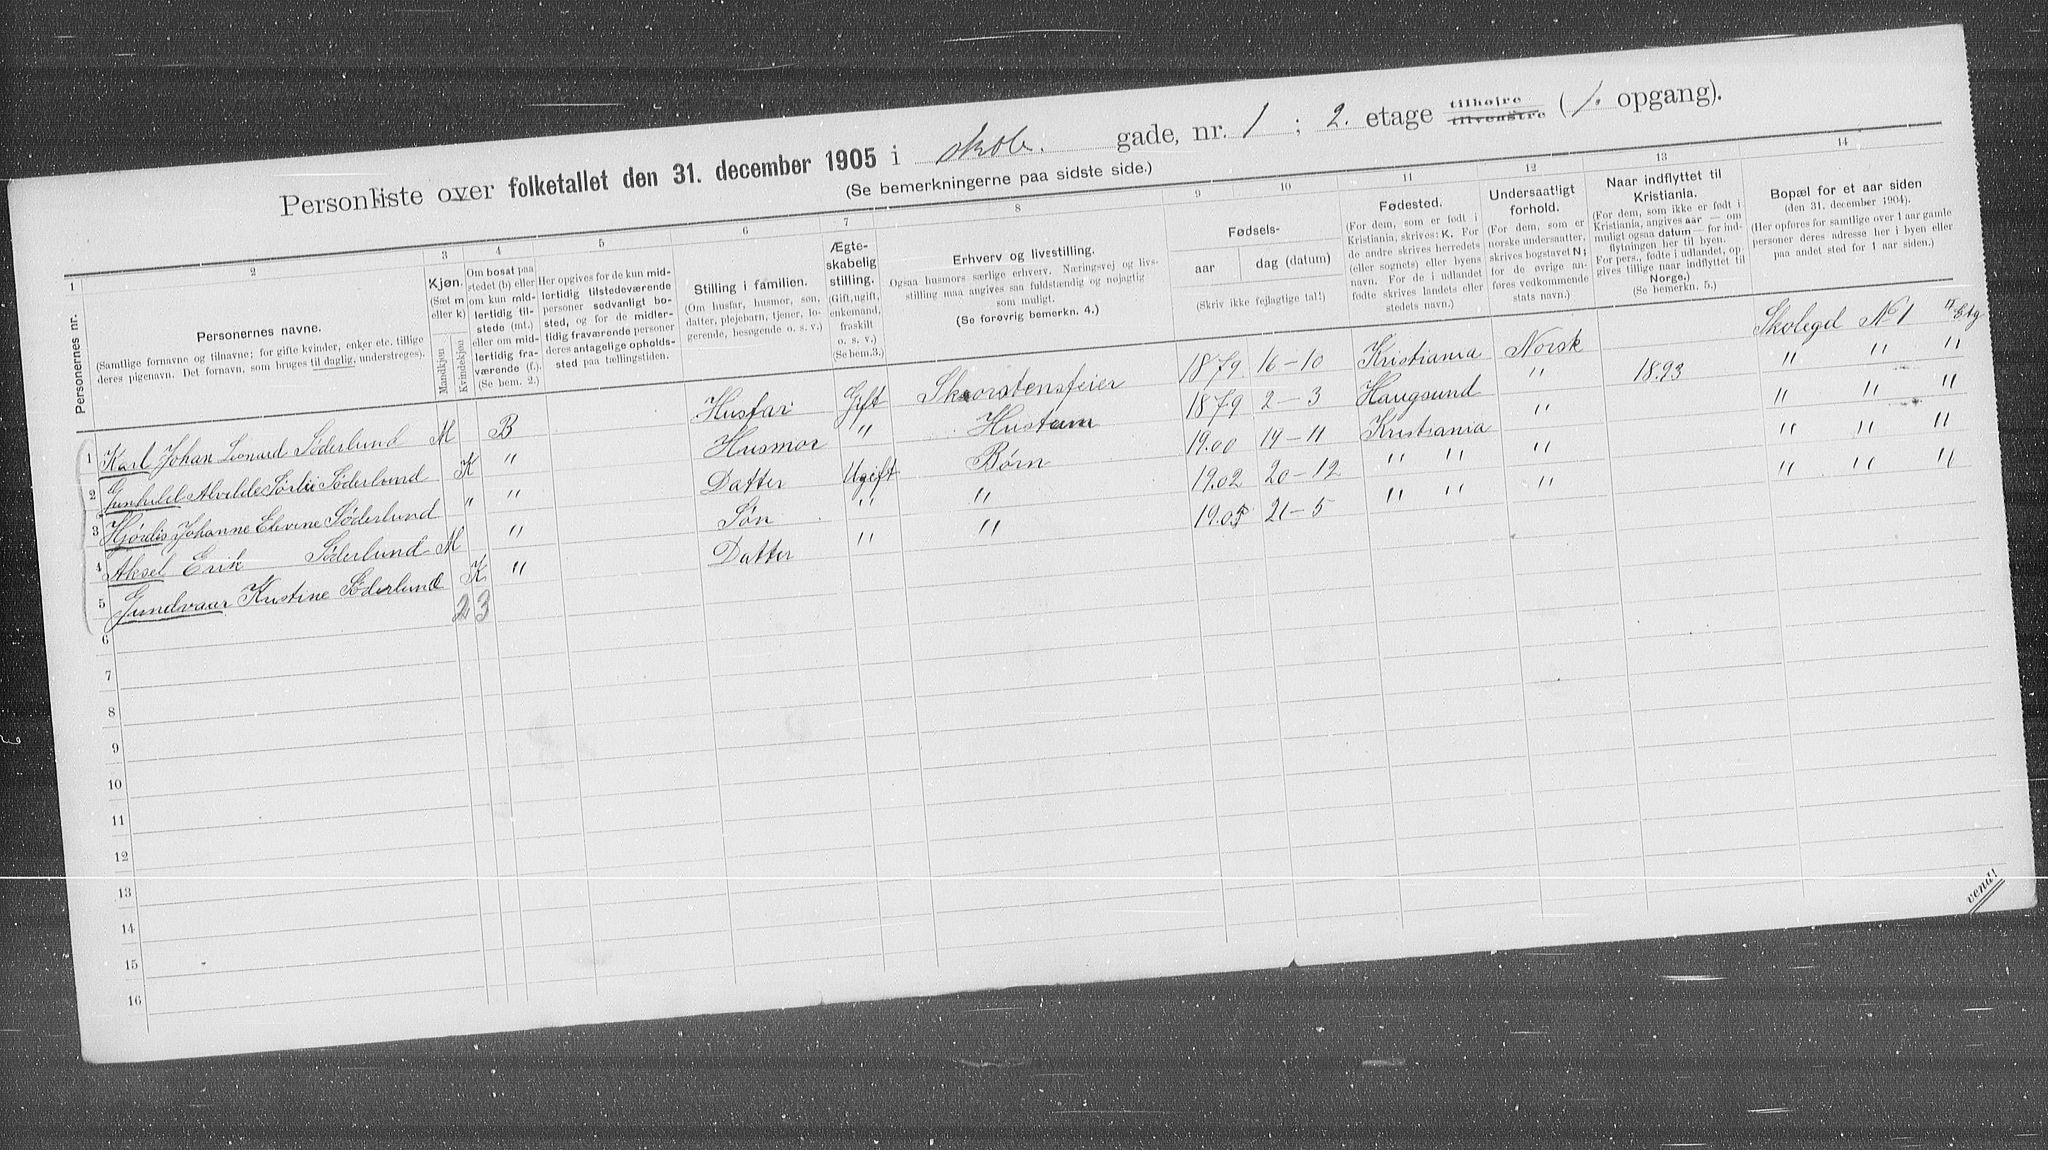 Personliste over folketallet den 31. december 1905 i skole. gade, nr. 1 ; 2. etage tilhøjre tilvenstre ( 1. opgang).
(Se bemerkningerne paa sidste side.)
1 2 3 4 5 6 7 8 9 10 11 12 13 14
Personernes nr.
Personernes navne.
(Samtlige fornavne og tilnavne; for gifte kvinder, enker etc. tillige
deres pigenavn. Det fornavn, som bruges til daglig, understreges).
Kjøn.
(Sæt m
eller k)
Mandkjøn
Kvindekjøn
Om bosat paa
stedet (b) eller
om kun mid-
lertidig til-
stede (mt.)
eller om mid-
lertidig fra-
værende (f.).
(Se bem. 2.)
Her opgives for de kun mid-
lertidig tilstedeværende
personer sedvanligt bo-
sted, og for de midler-
tidig fraværende personer
deres antagelige opholds-
sted paa tællingstiden.
Stilling i familien.
(Om husfar, husmor, søn,
datter, plejebarn, tjener, lo-
gerende, besøgende o. s. v.)
Ægte-
skabelig
stilling.
(Gift, ugift,
enkemand,
fraskilt
o. s. v.)
(Se bem.3.)
Erhverv og livestilling.
Ogsaa husmors særlige erhverv. Næringsvej og livs-
stilling maa angives saa fuldstændig og nøjagtig
som muligt.
(Se forøvrig bemerkn. 4.)
Fødsels-
aar
dag (datum)
(Skriv ikke fejlagtige tal!)
Fødested.
(For dem, som er født i
Kristiania, skrives: K. For
de andre skrives herredets
(eller sognets) eller byens
navn. For de i udlandet
fødte skrives landets eller
stedets navn.)
Undersaatligt
forhold.
(For dem, som er
norske undersaatter,
skrives bogstavet N;
for de øvrige an-
føres vedkommende
stats navn.)
Naar indflyttet til
Kristiania.
(For dem, som ikke er født i
Kristiania, angives aar — om
muligt ogsaa datum — for ind-
flytningen her til byen.
For pers., fødte i udlandet, op-
gives tillige naar indflyttet til
Norge.)
(Se bemerkn. 5.)
Bopæl for et aar siden
(den 31. december 1904).
(Her opføres for samtlige over 1 aar gamle
personer deres adresse her i byen eller
paa andet sted for 1 aar siden.)
1 Karl Johan Leonard Söderlund M B Husfar Gift Skorstensfeier 1879 16-10 Kristiania Norsk Skolegd No 1 4 Etg
2 Gunhild Alvilde Sørlie Söderlund K " Husmor " 1879 2-3 Haugsund " 1893 " " "
3 Hjørdis Johanne Elevine Söderlund " " Datter Ugift Børn 1900 14-11 Kristiania " " " "
4 Aksel Erik Söderlund M " Søn " " 1902 20-12 " " " " " "
5 Gundvaar Kristine Söderlund K " Datter " " 1905 21-5 " " " " " "
2 3
6
7
8
9
10
11
12
13
14
15
16
vend!